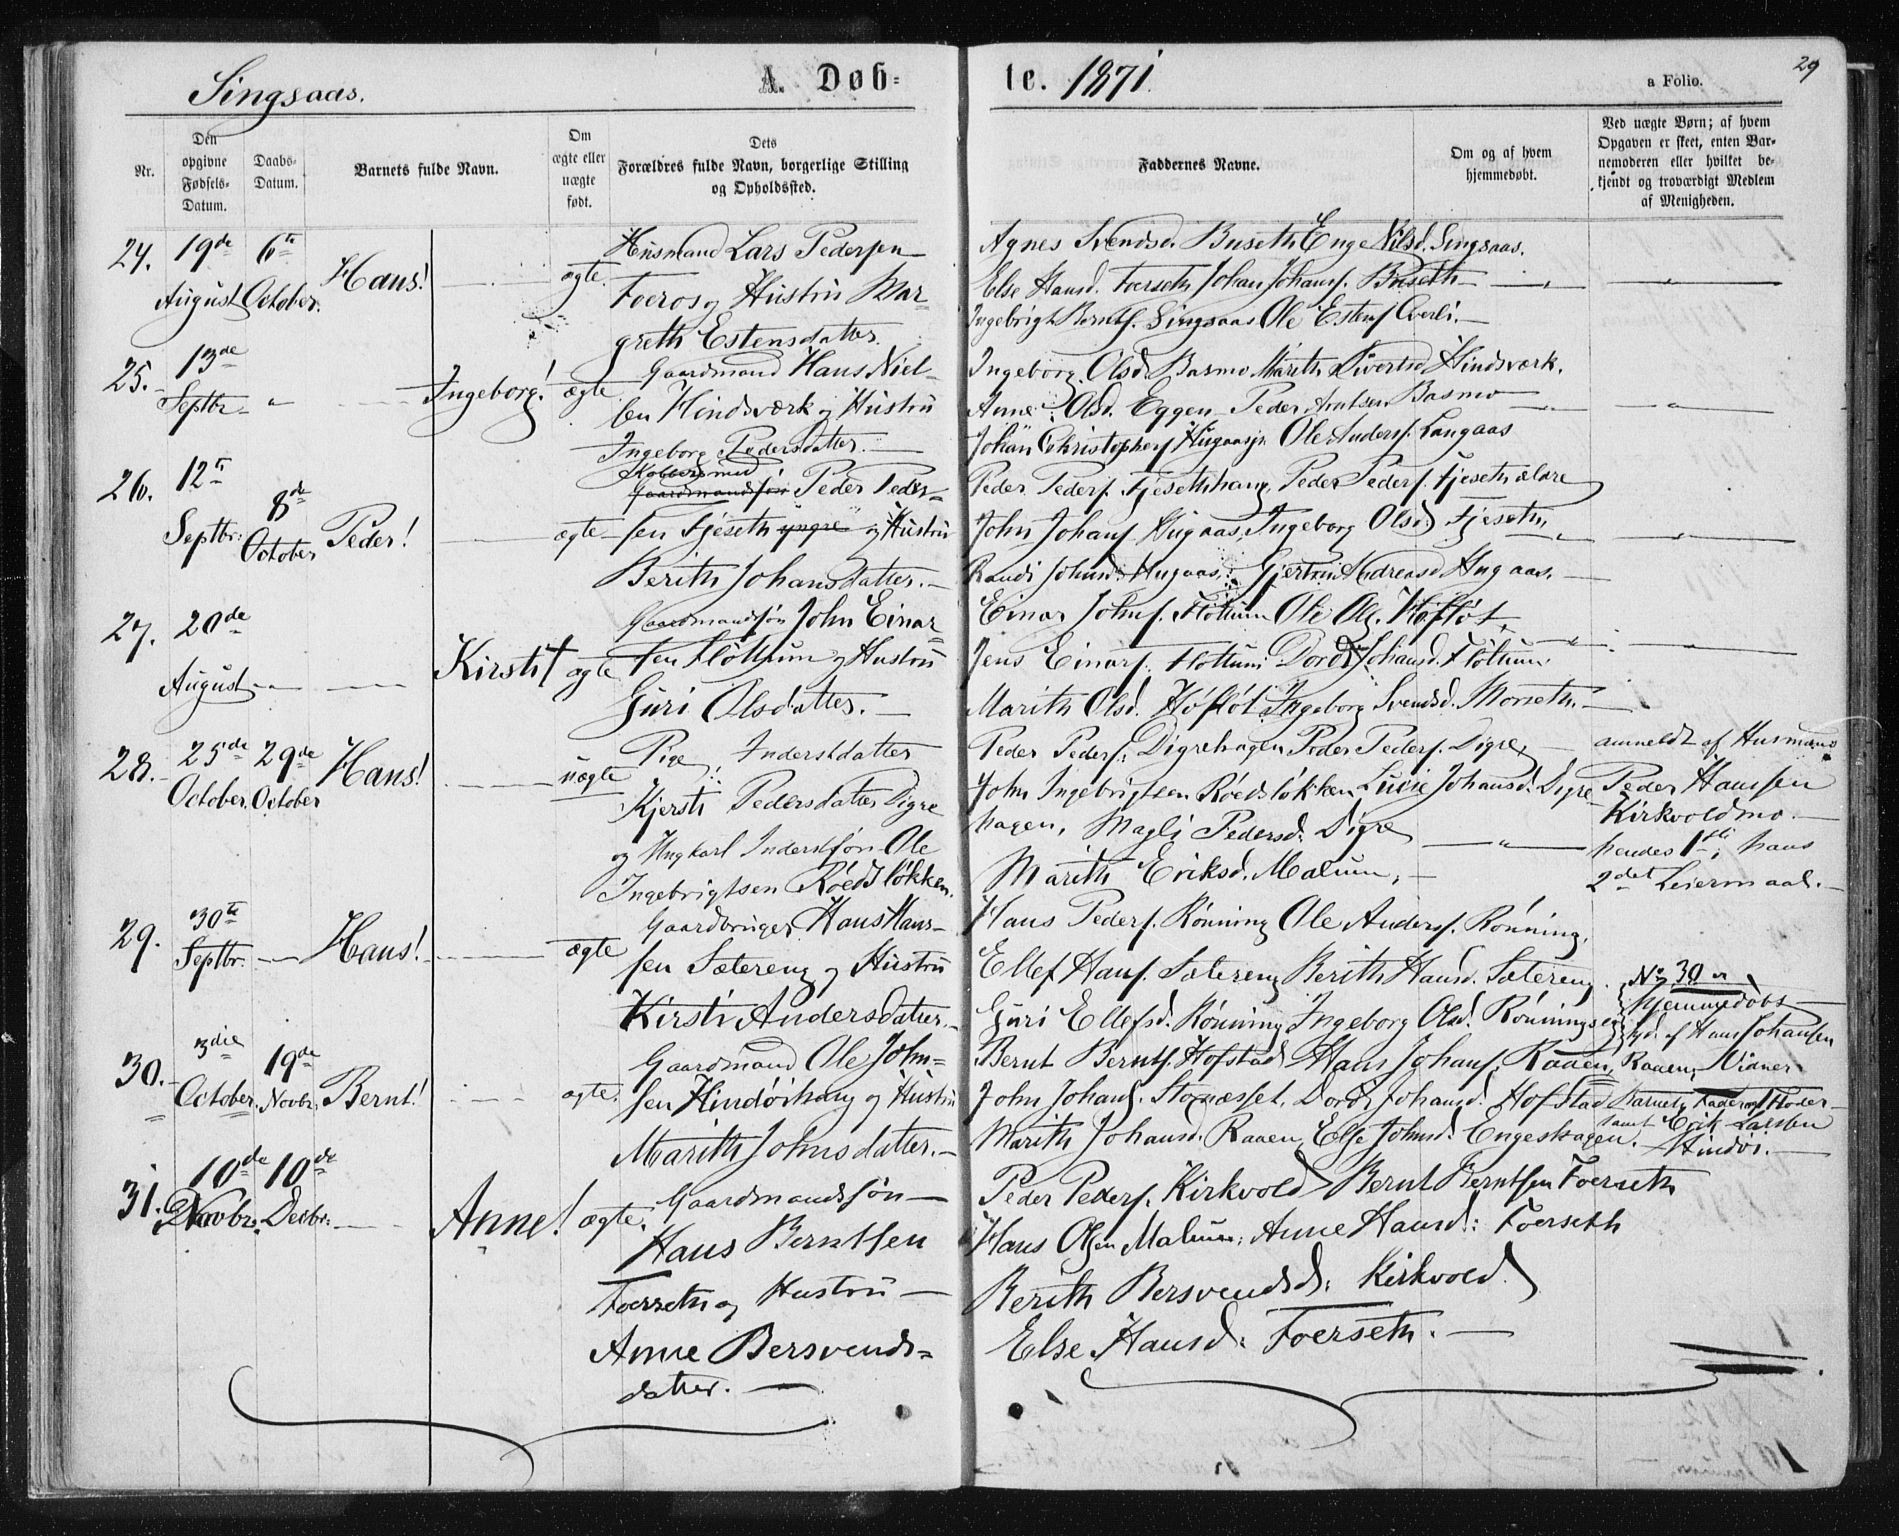 Singsaas.
A. Døb=
te. 1871.
a Folio.
29
Nr.
Den opgivne Fødsels-Datum.
Daabs-Datum.
Barnets fulde Navn.
Om ægte eller uægte født.
Dets Forældres fulde Navn, borgerlige Stilling og Opholdssted.
Faddernes Navne.
Om og af hvem hjemmedøbt.
Ved uægte Børn; af hvem Opgaven er skeet, enten Barnemoderen eller hvilket bekjendt og troværdigt Medlem af Menigheden.
24. 19de August 6te October. Hans! ægte.
Husmand Lars Pedersen
Foeros og Hustru Mar=
greth Estensdatter.
Agnes Svendsd. Buseth Enge Nilsd. Singsaas.
Else Hansd. Foerseth Johan Johans. Buseth
Ingebrigt Bernts. Singsaas Ole Estens. Overli.
25. 13de Septbr. " Ingeborg! ægte
Gaardmand Hans Niel=
sen Hindsværk og Hustru
Ingeborg Pedersdatter.
Ingeborg Olsd. Basmo Marith Sivertsd. Hindsværk.
Anne Olsd. Eggen Peder Arntsen Basmo
Johan Christophers. Hugaas jr. Ole Anders. Langaas
26. 12te Septbr. 8de October Peder! ægte
Gaardmandsøn Peder Peder=
sen Fjeseth yngre og Hustru
Berith Johansdatter.
Peder Peders. Fjesethhaug, Peder Peders. Fjeseth ældre
John Johans. Hugaas, Ingeborg Olsd. Fjeseth,
Randi Johnsd. Hugaas, Gjertrud Andreasd. Hugaas.
27. 20de August Kirsti † ægte
Gaardmandsøn John Einar=
sen Fløttum og Hustru
Guri Olsdatter.
Einar Johns. Fløttum Ole Ols. Høfløt,
Jens Einars. Fløttum Dordi Johansd. Fløttum
Marith Olsd. Høfløt Ingeborg Svendsd. Morseth.
28. 25de October. 29de October Hans! uægte
Pige, Inderstdatter
Kjersti Pedersdatter Digre
og Ungkarl Inderstsøn Ole
Ingebrigtsen Röedsløkken.
Peder Peders. Digrehagen Peder Peders. Digre,
John Ingebrigtsen Röedsløkken Lucie Johansd. Digre
hagen, Magli Pedersd. Digre
Marith Eriksd. Malum,
anmeldt af Husmand
Peder Hansen
Kirkvoldmo.
hendes 1ste, hans
2det Leiermaal.
29. 30te Septbr. Hans! ægte
Gaardbruger Hans Han=
sen Sætereng og Hustru
Kirsti Andersdatter.
Hans Peders. Rønning Ole Anders. Rønning,
Ellef Hans. Sætereng Berith Hansd. Sætereng
Guri Ellefsd. Rønning Ingeborg Olsd. Rønningseng
30. 3die October. 19de Novbr. Bernt! ægte.
Gaardmand Ole John=
sen Hindøihaug og Hustru
Marith Johnsdatter.
Bernt Bernts. Hofstad Hans Johans. Raaen,
John Johans. Storæsset. Dordi Johansd. Hofstad
Marith Johansd. Raaen, Else Johnsd. Engeshagen.
No 30 er
hjemmedøbt
af Hans Johansen
Raaen, Vidner
Barnets Fader og Moder
samt Erik Larssen
Hindøi.
31. 10de Novbr. 10de Decbr. Anne! ægte.
Gaardmandsøn
Hans Berntsen
Foerseth og Hustru
Anne Bersvends=
datter.
Peder Peders. Kirkvold Bernt Berntsen Foerseth
Hans Olsen Malum, Anne Hansd. Foerseth
Berith Bersvendsd. Kirkvold.
Else Hansd. Foerseth.